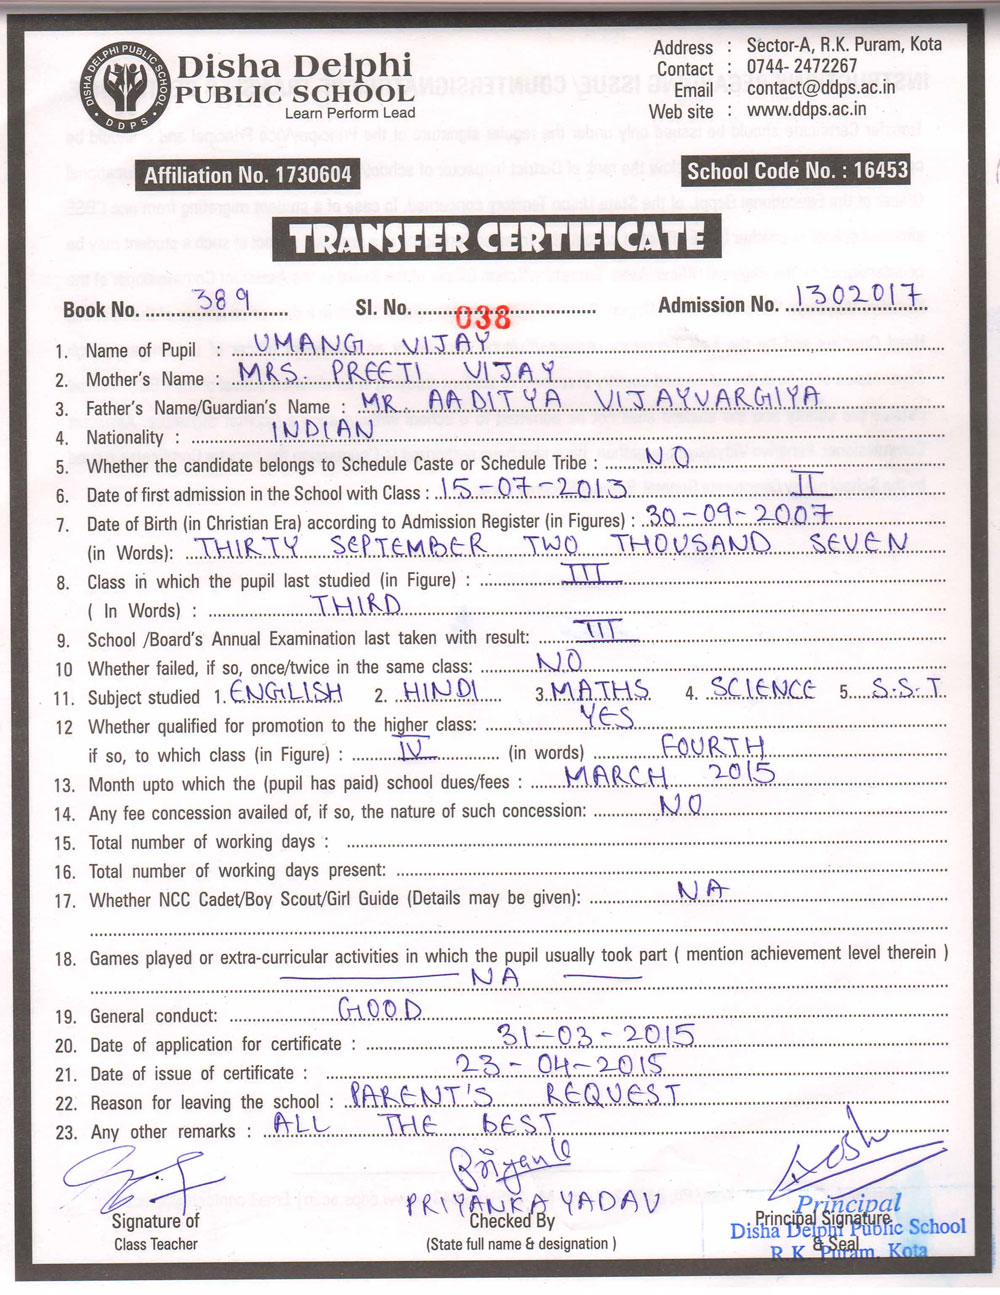 DISHA DELPHI PUBLIC SCHOOL
DDPS
Disha Delphi
PUBLIC SCHOOL
Learn Perform Lead
Address : Sector-A, R.K. Puram, Kota
Contact : 0744- 2472267
Email : contact@ddps.ac.in
Web site : www.ddps.ac.in
Affiliation No. 1730604
School Code No. : 16453
TRANSFER CERTIFICATE
Book No. 389 Sl. No. 038 Admission No. 1302017
1. Name of Pupil : UMANG VIJAY
2. Mother's Name : MRS. PREETI VIJAY
3. Father's Name/Guardian's Name : MR. AADITYA VIJAYVARGIYA
4. Nationality : INDIAN
5. Whether the candidate belongs to Schedule Caste or Schedule Tribe : NO
6. Date of first admission in the School with Class : 15-07-2013 II
7. Date of Birth (in Christian Era) according to Admission Register (in Figures) : 30-09-2007
(in Words): THIRTY SEPTEMBER TWO THOUSAND SEVEN
8. Class in which the pupil last studied (in Figure) : III
( In Words) : THIRD
9. School /Board's Annual Examination last taken with result: III
10 Whether failed, if so, once/twice in the same class: NO
11. Subject studied 1. ENGLISH 2. HINDI 3. MATHS 4. SCIENCE 5. S.S.T
12 Whether qualified for promotion to the higher class: YES
if so, to which class (in Figure) : IV (in words) FOURTH
13. Month upto which the (pupil has paid) school dues/fees : MARCH 2015
14. Any fee concession availed of, if so, the nature of such concession: NO
15. Total number of working days :
16. Total number of working days present:
17. Whether NCC Cadet/Boy Scout/Girl Guide (Details may be given): NA
18. Games played or extra-curricular activities in which the pupil usually took part ( mention achievement level therein )
NA
19. General conduct: GOOD
20. Date of application for certificate : 31-03-2015
21. Date of issue of certificate : 23-04-2015
22. Reason for leaving the school : PARENT'S REQUEST
23. Any other remarks : ALL THE BEST
PRIYANKA YADAV
Signature of
Class Teacher
Checked By
(State full name & designation )
Principal
Principal Signature
Disha Delphi Public School
& Seal
R.K. Puram, Kota